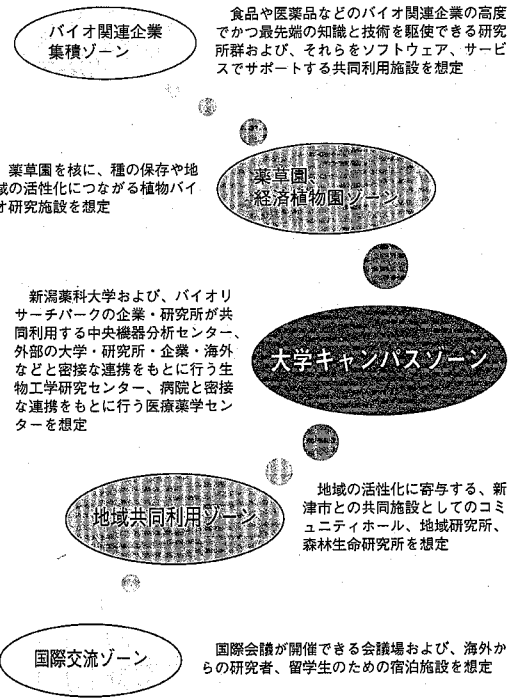 バイオ関連企業
集積ゾーン
食品や医薬品などのバイオ関連企業の高度
でかつ最先端の知識と技術を駆使できる研究
所群および、それらをソフトウェア、サービ
スでサポートする共同利用施設を想定
薬草園を核に、種の保存や地
域の活性化につながる植物バイ
オ研究施設を想定
薬草園、
経済植物園ゾーン
新潟薬科大学および、バイオリ
サーチパークの企業・研究所が共
同利用する中央機器分析センター、
外部の大学・研究所・企業・海外
などと密接な連携をもとに行う生
物工学研究センター、病院と密接
な連携をもとに行う医療薬学セン
ターを想定
大学キャンパスゾーン
地域共同利用ゾーン
地域の活性化に寄与する、新
津市との共同施設としてのコミ
ュニティホール、地域研究所、
森林生命研究所を想定
国際交流ゾーン
国際会議が開催できる会議場および、海外か
らの研究者、留学生のための宿泊施設を想定